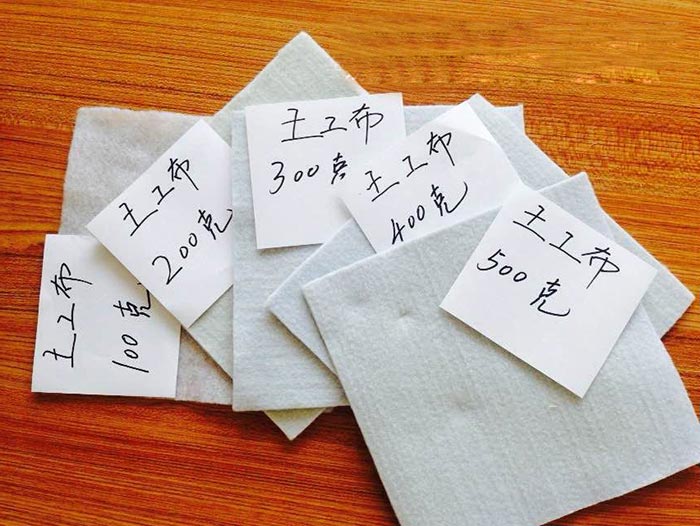 土工布
100克
土工布
200克
土工布
300克
土工布
400克
土工布
500克